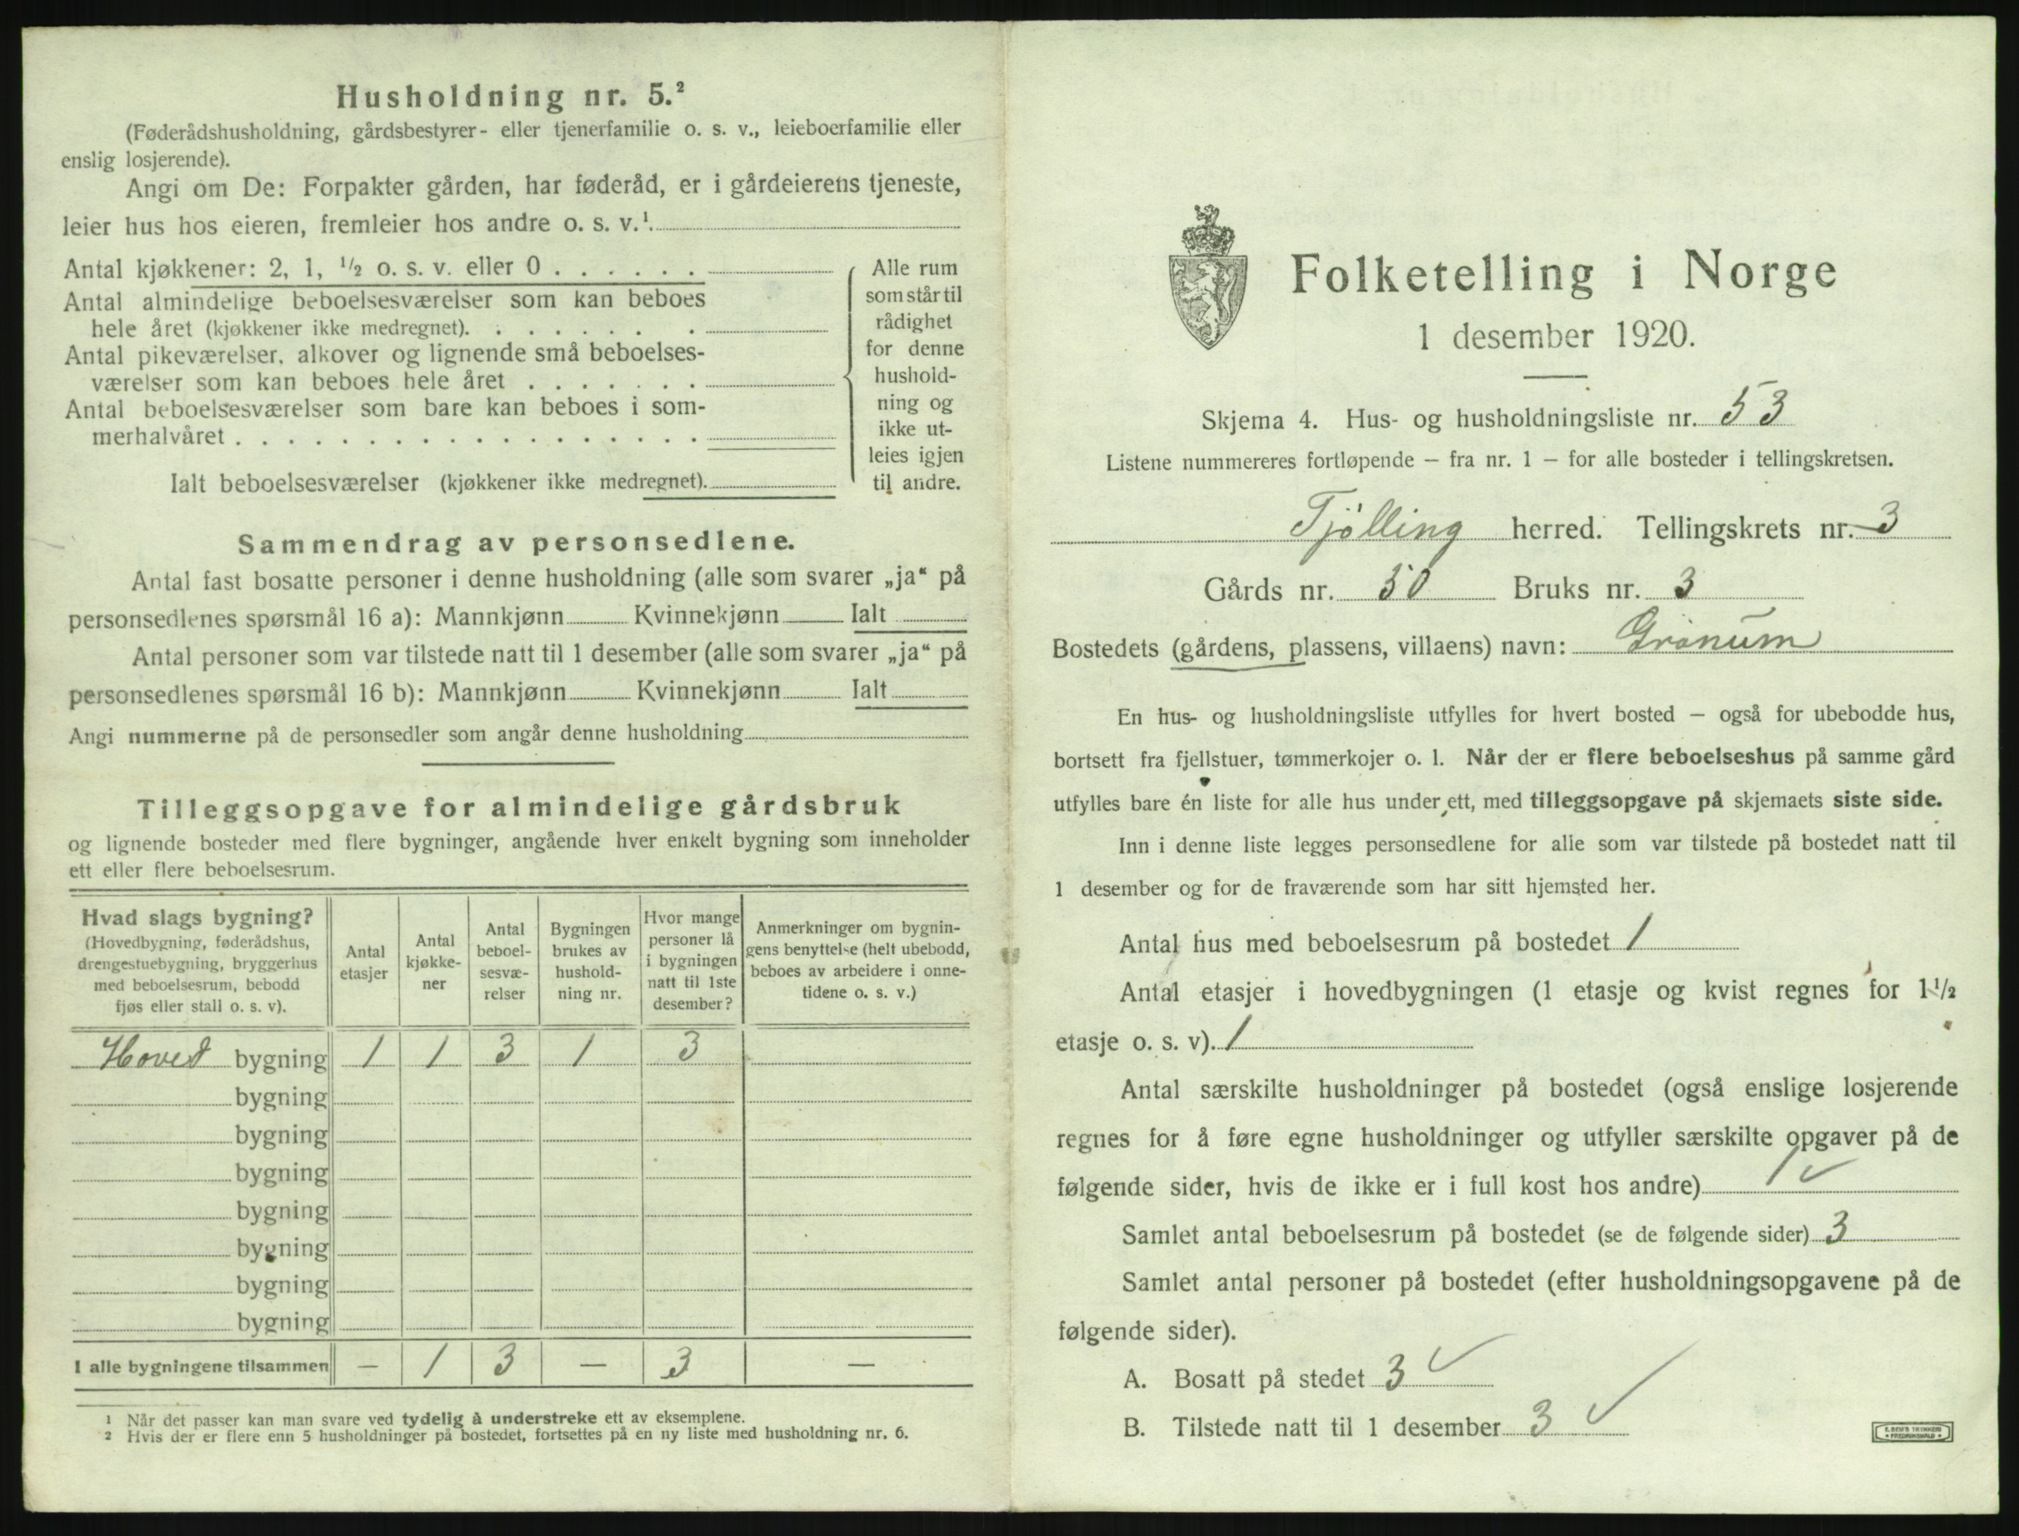 Husholdning nr. 5.²
(Føderådshusholdning, gårdsbestyrer- eller tjenerfamilie o. s. v., leieboerfamilie eller
enslig losjerende).
Angi om De: Forpakter gården, har føderåd, er i gårdeierens tjeneste,
leier hus hos eieren, fremleier hos andre o. s. v.¹.
Antal kjøkkener: 2, 1, ½ o. s. v. eller 0 . . . . . .
Antal almindelige beboelsesværelser som kan beboes
hele året (kjøkkener ikke medregnet). . . . . . . . .
Antal pikeværelser, alkover og lignende små beboelses-
værelser som kan beboes hele året . . . . . . .
Antal beboelsesværelser som bare kan beboes i som-
merhalvåret . . . . . . . . . . . . . . . . . .
Ialt beboelsesværelser (kjøkkener ikke medregnet).
Alle rum
som står til
rådighet
for denne
hushold-
ning og
ikke ut-
leies igjen
til andre.
Sammendrag av personsedlene.
Antal fast bosatte personer i denne husholdning (alle som svarer „ja“ på
personsedlenes spørsmål 16 a): Mannkjønn Kvinnekjønn Ialt
Antal personer som var tilstede natt til 1 desember (alle som svarer „ja“ på
personsedlenes spørsmål 16 b): Mannkjønn Kvinnekjønn Ialt
Angi nummerne på de personsedler som angår denne husholdning
Tilleggsopgave for almindelige gårdsbruk
og lignende bosteder med flere bygninger, angående hver enkelt bygning som inneholder
ett eller flere beboelsesrum.
Hvad slags bygning?
(Hovedbygning, føderådshus,
drengestuebygning, bryggerhus
med beboelsesrum, bebodd
fjøs eller stall o. s. v).
Antal
etasjer
Antal
kjøkke-
ner
Antal
beboel-
sesvæ-
relser
Bygningen
brukes av
hushold-
ning nr.
Hvor mange
personer lå
i bygningen
natt til 1ste
desember?
Anmerkninger om bygnin-
gens benyttelse (helt ubebodd,
beboes av arbeidere i onne-
tidene o. s. v.)
Hoved bygning 1 1 3 1 3
bygning
bygning
bygning
bygning
bygning
bygning
bygning
I alle bygningene tilsammen — 1 3 — 3 —
1 Når det passer kan man svare ved tydelig å understreke ett av eksemplene.
2 Hvis der er flere enn 5 husholdninger på bostedet, fortsettes på en ny liste med husholdning nr. 6.
Folketelling i Norge
1 desember 1920.
Skjema 4. Hus- og husholdningsliste nr. 53
Listene nummereres fortløpende – fra nr. 1 – for alle bosteder i tellingskretsen.
Tjølling herred. Tellingskrets nr. 3
Gårds nr. 50 Bruks nr. 3
Bostedets (gårdens, plassens, villaens) navn: Grønum
En hus- og husholdningsliste utfylles for hvert bosted – også for ubebodde hus,
bortsett fra fjellstuer, tømmerkojer o. l. Når der er flere beboelseshus på samme gård
utfylles bare én liste for alle hus under ett, med tilleggsopgave på skjemaets siste side.
Inn i denne liste legges personsedlene for alle som var tilstede på bostedet natt til
1 desember og for de fraværende som har sitt hjemsted her.
Antal hus med beboelsesrum på bostedet 1
Antal etasjer i hovedbygningen (1 etasje og kvist regnes for 1½
etasje o. s. v). 1
Antal særskilte husholdninger på bostedet (også enslige losjerende
regnes for å føre egne husholdninger og utfyller særskilte opgaver på de
følgende sider, hvis de ikke er i full kost hos andre) 1 ✓
Samlet antal beboelsesrum på bostedet (se de følgende sider) 3
Samlet antal personer på bostedet (efter husholdningsopgavene på de
følgende sider).
A. Bosatt på stedet 3 ✓
B. Tilstede natt til 1 desember 3 ✓